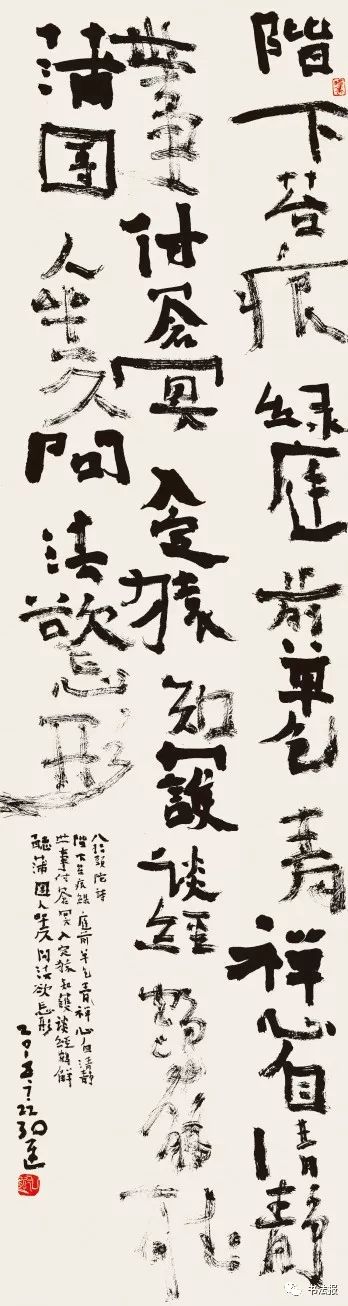 階下苔痕綠庭前草色青禅心自清靜
世事付蒼冥入定猿知護谈經鶴解聽
蒲團人坐久問法欲忘形
八指頭陀詩
階下苔痕綠庭前草色青禅心自清靜
世事付蒼冥入定猿知護谈經鶴解
聽蒲團人坐久問法欲忘形
书法报